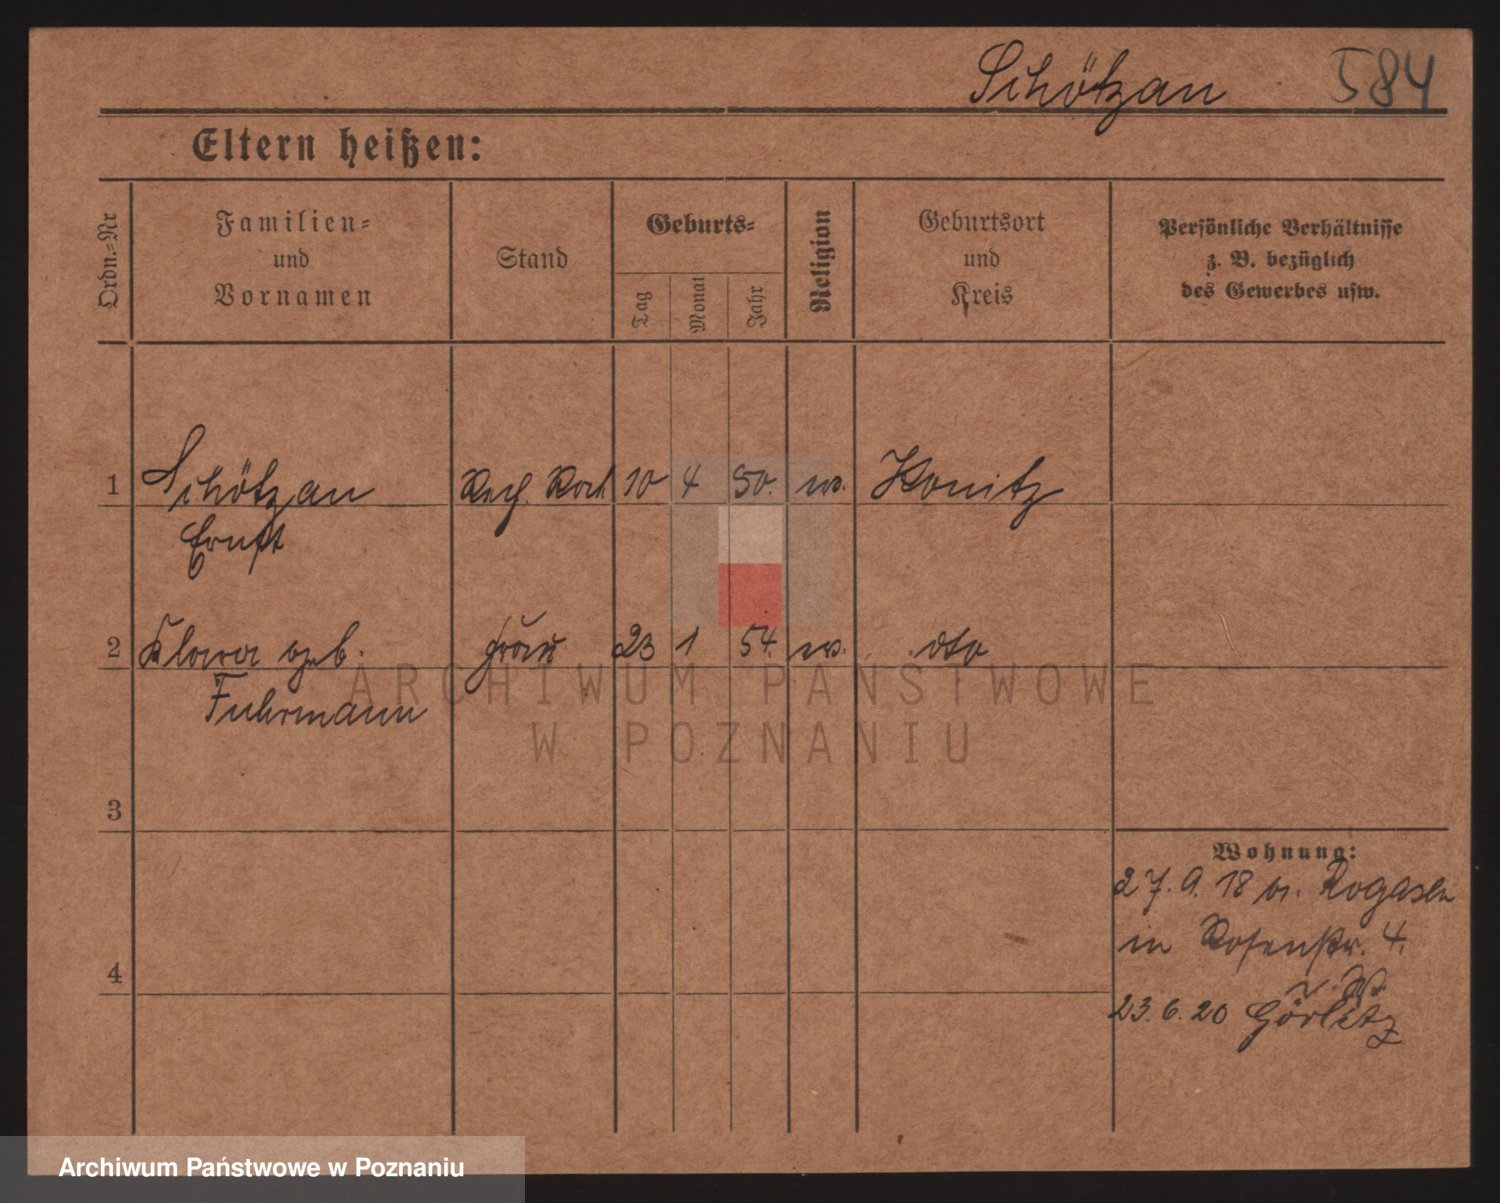 Schötzan 584
Eltern heißen:
Ordn.-Nr
Familien-
und
Vornamen
Stand
Geburts-
Tag
Monat
Jahr
Religion
Geburtsort
und
Kreis
Persönliche Verhältnisse
z. B. bezüglich
des Gewerbes usw.
1 Schötzan 10 4 50. Konitz
Ernst
2 Klara geb. Frau 23 1 54. dto
Fuhrmann
ARCHIWUM PAŃSTWOWE
W POZNANIU
3
Wohnung:
27.9.18 v. Rogasen
in Rosenstr. 4.
4
23.6.20 Görlitz
Archiwum Państwowe w Poznaniu